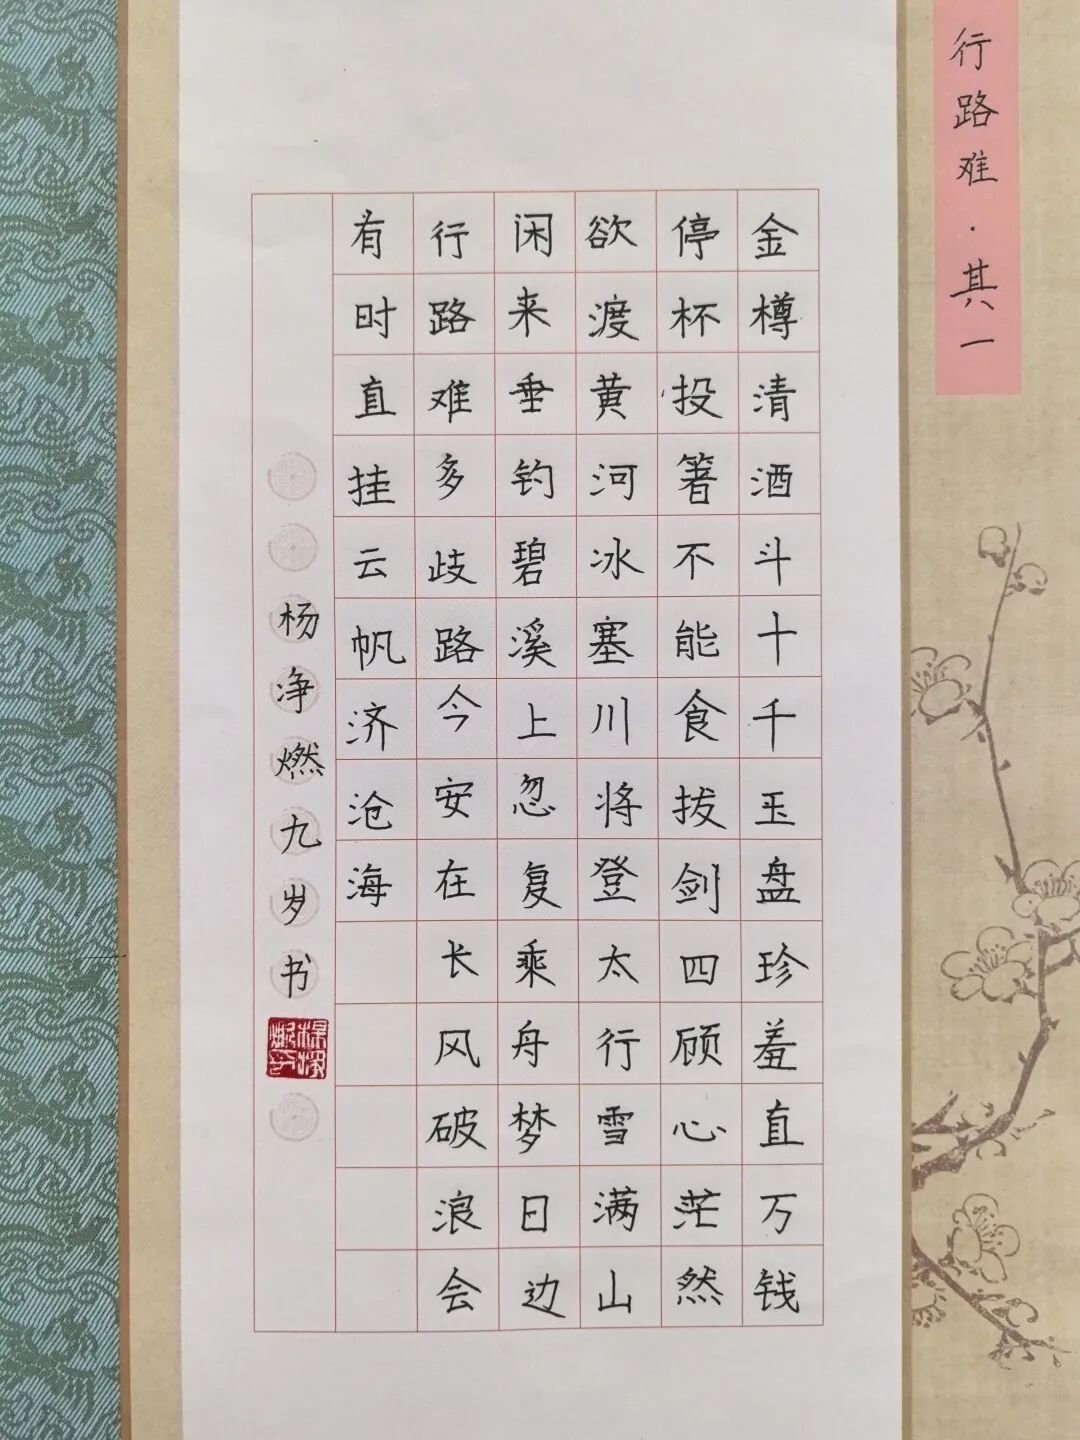 行路难·其一
金樽清酒斗十千玉盘珍羞直万钱
停杯投箸不能食拔剑四顾心茫然
欲渡黄河冰塞川将登太行雪满山
闲来垂钓碧溪上忽复乘舟梦日边
行路难多歧路今安在长风破浪会
有时直挂云帆济沧海
杨净燃九岁书